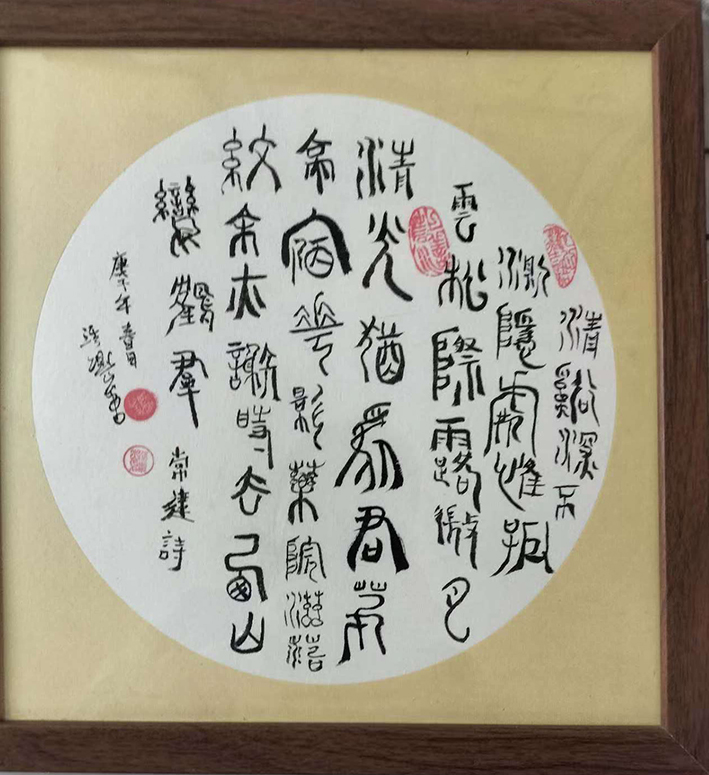 清谿深不
測隱處惟孤
雲松際露微月
清光猶為君茅
亭宿花影藥院滋苔
紋余亦謝時去西山
鸞鶴羣 常建詩
庚子年春月
書